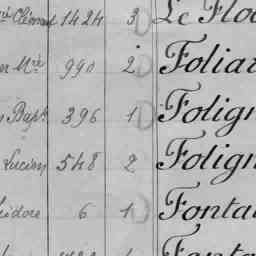 Clément 1424 3 Le Flo
Mie 990 2 Foliar
Bapt 396 1 Folign
Lucien 548 2 Folign
sidore 6 1 Fonta